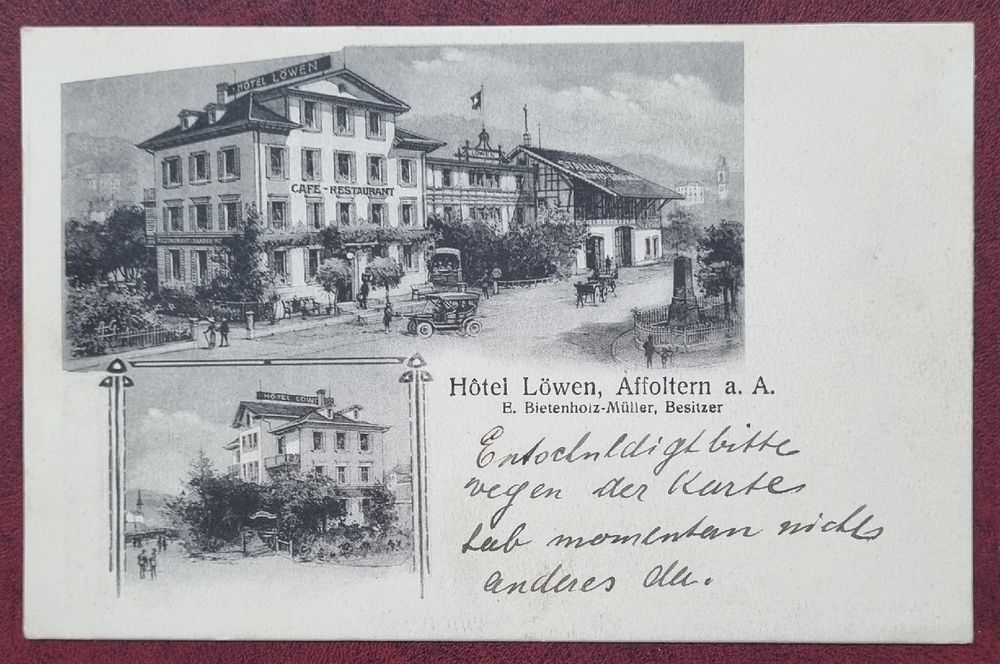 HÔTEL LÖWEN
CAFÉ-RESTAURANT
HÔTEL LÖWEN
Hôtel Löwen, Affoltern a. A.
E. Bietenholz-Müller, Besitzer
Entschuldigt bitte
wegen der Karte
hab momentan nichts
anderes da.